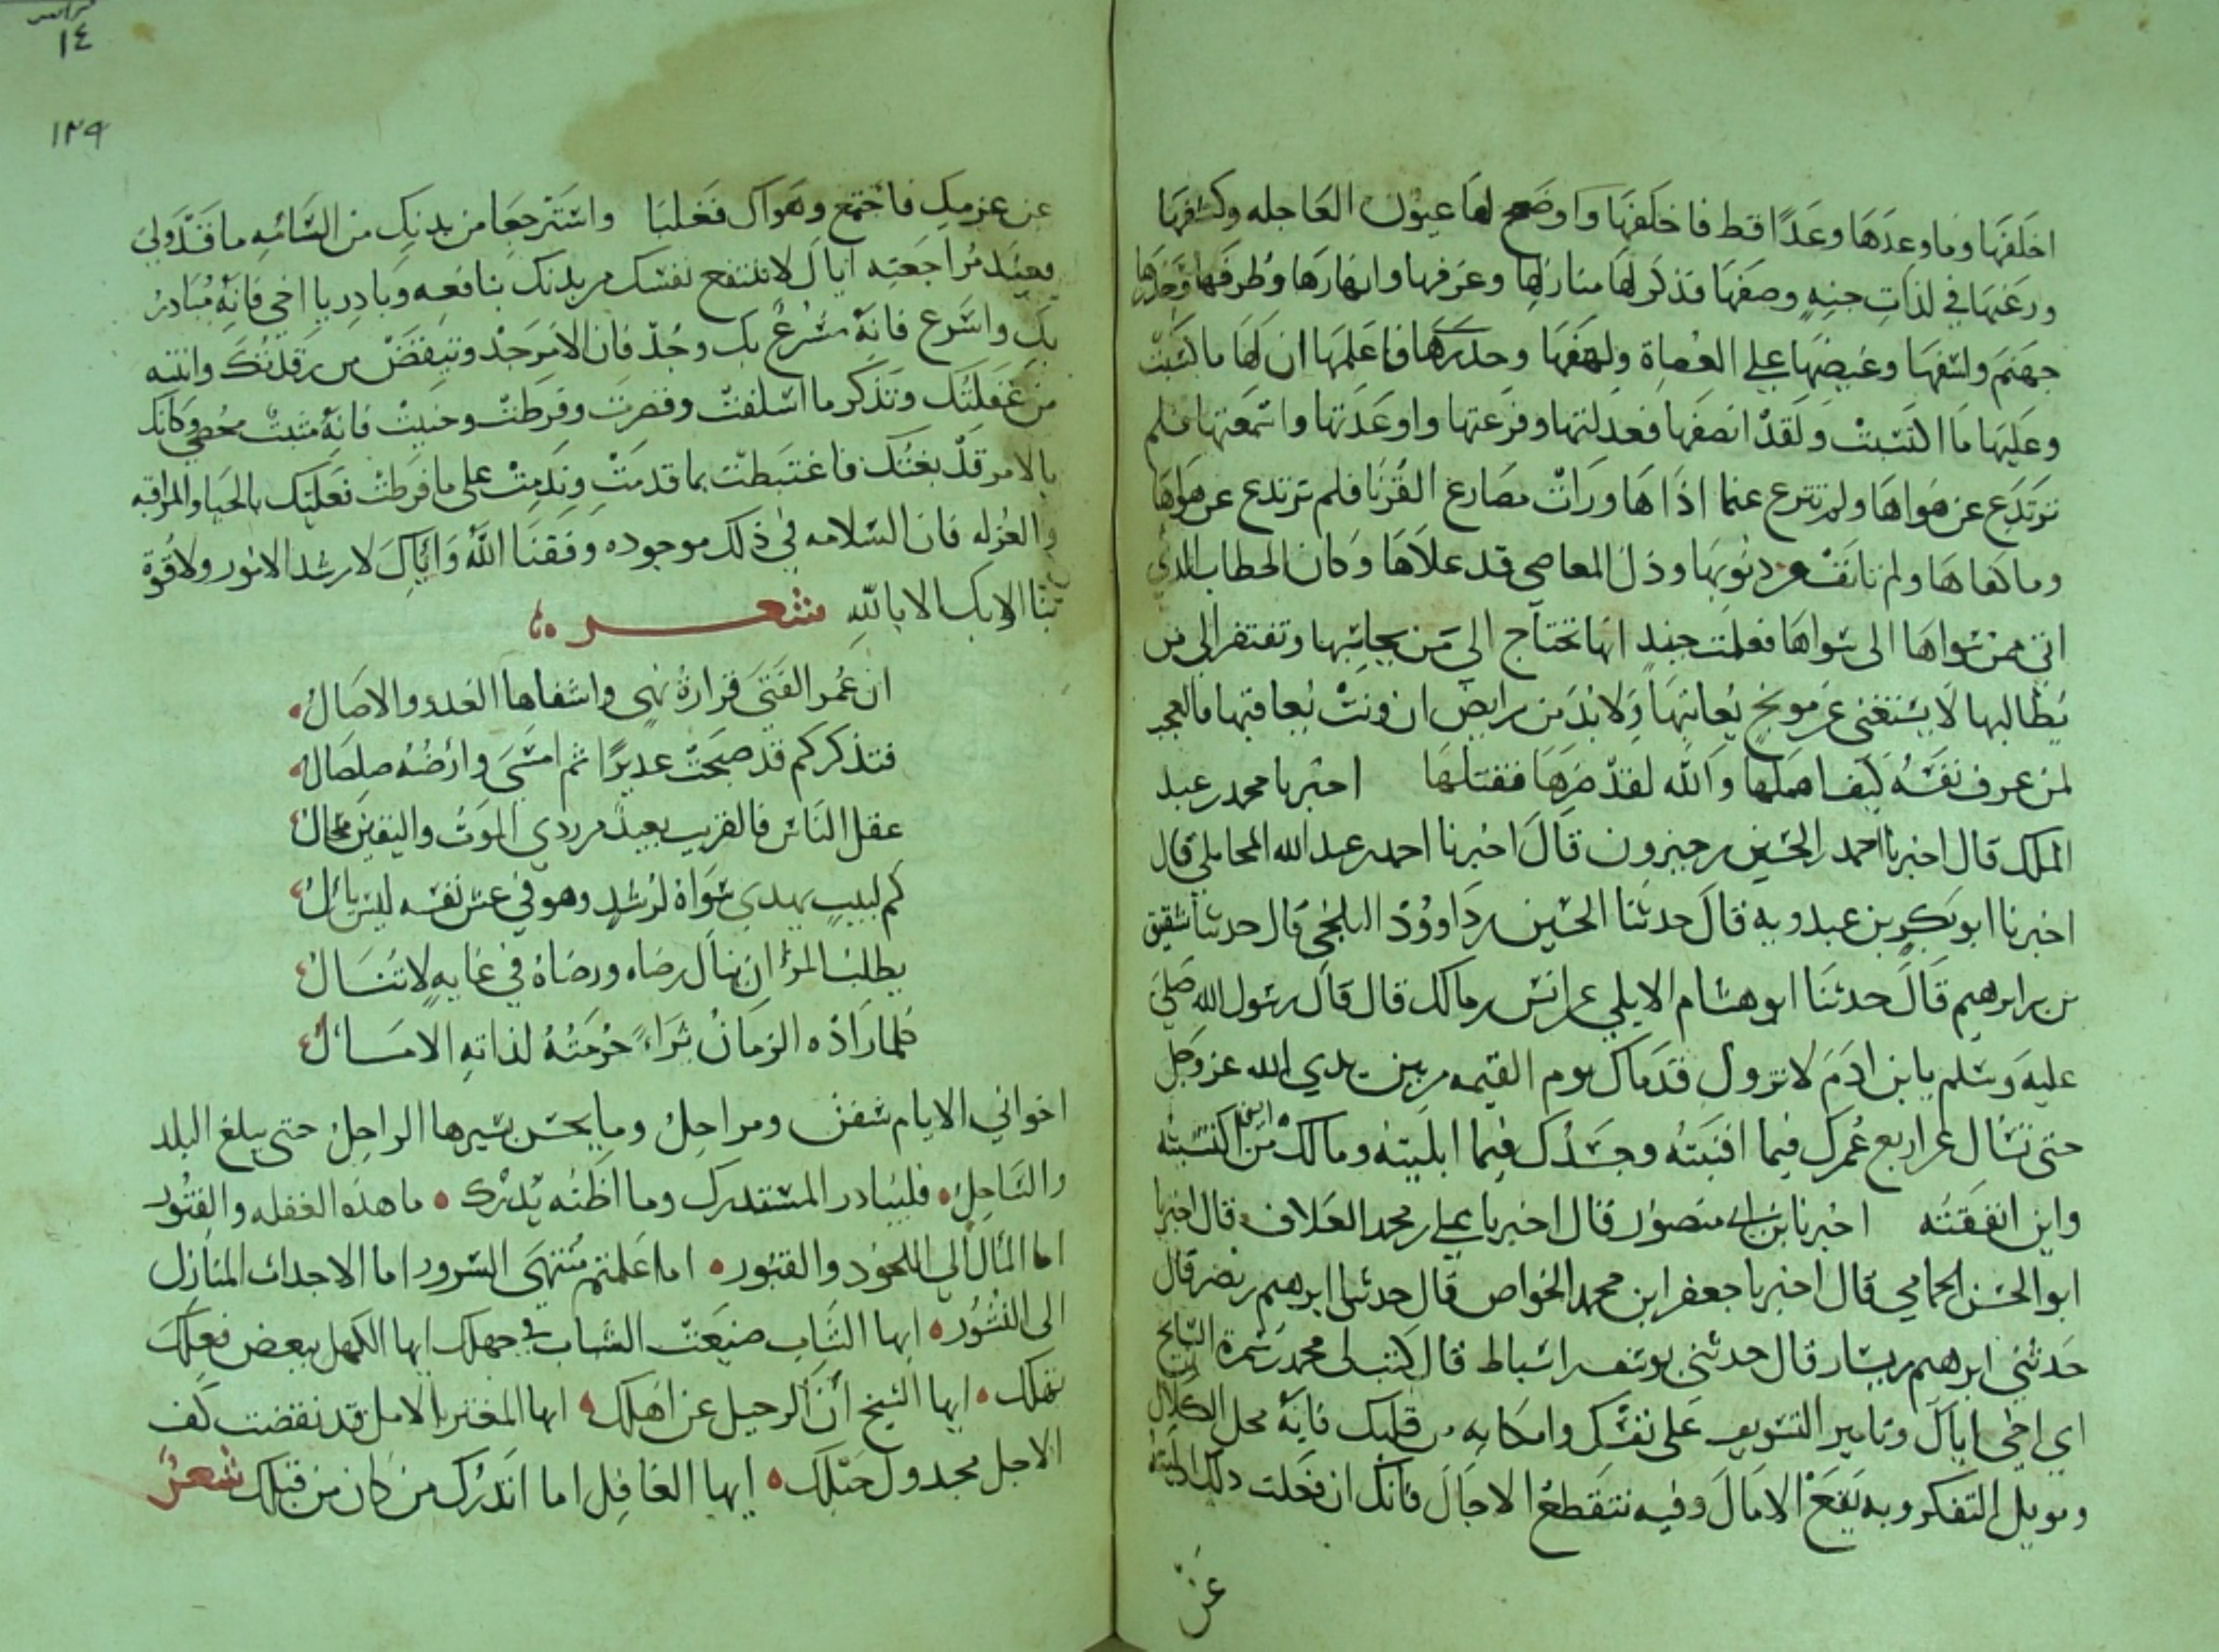 اخلفها وما وعدها وعدًا قط فاخلفها واوضح لها عيون العاجله وكشفها
ورغبها في لذات جنبه وصفها فذكر لها منازلها وغرفها وانهارها وطرفها وحذرها
جهنم ولشفها وغيضها على العصاة ولهفها وحذرها فاعلمها ان لها ما كسبت
وعليها ما اكتسبت ولقد انصفها فعدلتها وفزعتها واوعدتها واسمعتها فلم
ترتدع عن هواها ولم تترع عنما اذاها ورات مصارع القرنا فلم ترتدع عن هواها
وما كفاها ولم تانف من ذنوبها وذل المعاصي قد علاها وكان الخطاب الذي
اتي ممن سواها الى سواها فعلمت حينيذ انها تحتاج الي من يحاسبها وتفتقر الي من
يطالبها لا يستغني عن موبخ يعاتبها ولا بد من رايض ان ونت يعاقبها فالعجب
لمن عرف نفسه كيف اهملها والله لقد ضرها فقتلها اخبرنا محمد بن عبد
الملك قال اخبرنا احمد بن الحسين بن خيرون قال اخبرنا احمد بن عبد الله المحاملي قال
اخبرنا ابو بكر بن عبدويه قال حدثنا الحسين بن داوود البلخي قال حدثنا شقيق
بن ابرهيم قال حدثنا ابو هشام الايلي عن انس بن مالك قال قال رسول الله صلى
عليه وسلم يا بن ادم لا تزول قدماك يوم القيمه من بين يدي الله عز وجل
حتى تسال عن اربع عمرك فيما افنيته وجسدك فيما ابليته ومالك من اين اكتسبته
واين انفقته اخبرنا بن ابي منصور قال اخبرنا علي بن محمد العلاف قال اخبرنا
ابو الحسن الحمامي قال اخبرنا جعفر ابن محمد الخواص قال حدثنا ابرهيم بن نصر قال
حدثني ابرهيم بن بشار قال حدثني يوسف بن اسباط قال كتب لي محمد بن سمرة السايح
اي اخي اياك وتامير التسويف على نفسك وامكانه من قلبك فانه محل الكلال
وموبل التفكر وبه تقطع الامال وفيه تنقطع الاجال فانك ان فعلت ذلك
عن
١٤
١٢٩
عن عزمك فاجتمع وهواك فغلبا واسترجعا من بدنك من السامه ما قد ولى
فعند مراجعته اياك لا تنتفع نفسك من بدنك بنافعه وبادر يا اخي فانه مبادر
بك واسرع فانه مسرع بك وجد فان الامر جد وتيقض من رقدتك وانتبه
من غفلتك وتذكر ما اسلفت وقصرت وفرطت وجنيت فانه مثبت محصي وكانك
بالامر قد بغتك فاغتبطت بما قدمت وندمت على ما فرطت فعليك بالحيا والمراقبه
والعزله فان السلامه في ذلك موجوده وفقنا الله واياك لارشد الامور ولا قوة
بنا الا بك الا بالله شعر
ان عمر الفتى قرارة نهى واشفاها الغدو والاصال
فتذكر كم قد صبحت غديرًا ثم امسى وارضه صلصال
عقل الناس فالقريب بعيد من ردي الموت واليقين محال
كم لبيب يهدي سواه لرشد وهو في عش نفسه ليس يال
يطلب المرء ان ينال رضاه ورضاه في غايه لا تنال
فلما زاده الزمان ثراء حرمته لذاته الامال
اخواني الايام سفن ومراحل وما يحس بسيرها الراحل حتى يبلغ البلد
والساحل فليبادر المستدرك وما اظنه يدرك ما هذه الغفله والفتور
اما المال الي اللحود والقبور اما علمتم منتهى السرور اما الاجداث المنازل
الى النشور ايها الشاب ضيعت الشباب في جهلك ايها الكهل ببعض فعلك
تهلك ايها الشيخ آن الرحيل عن اهلك ايها المغتر بالامل قد نقضت كف
الاجل مجدول حبلك ايها الغافل اما انذرك من كان من قبلك شعر